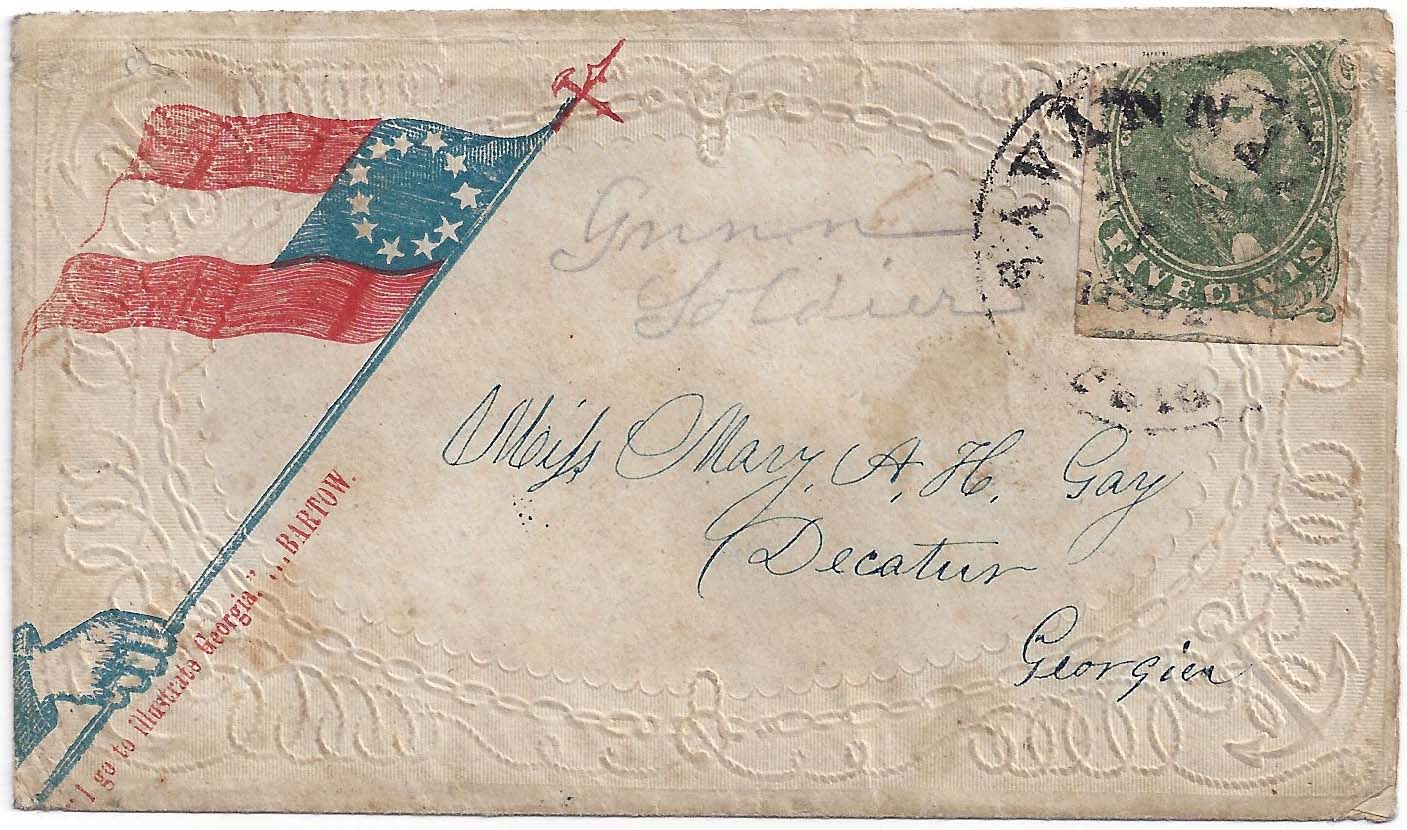 SAVANNA
FIVE CENTS
Gunn
Soldier
Miss Mary A. H. Gay
Decatur
Georgia
"I go to illustrate Georgia,"...BARTOW.